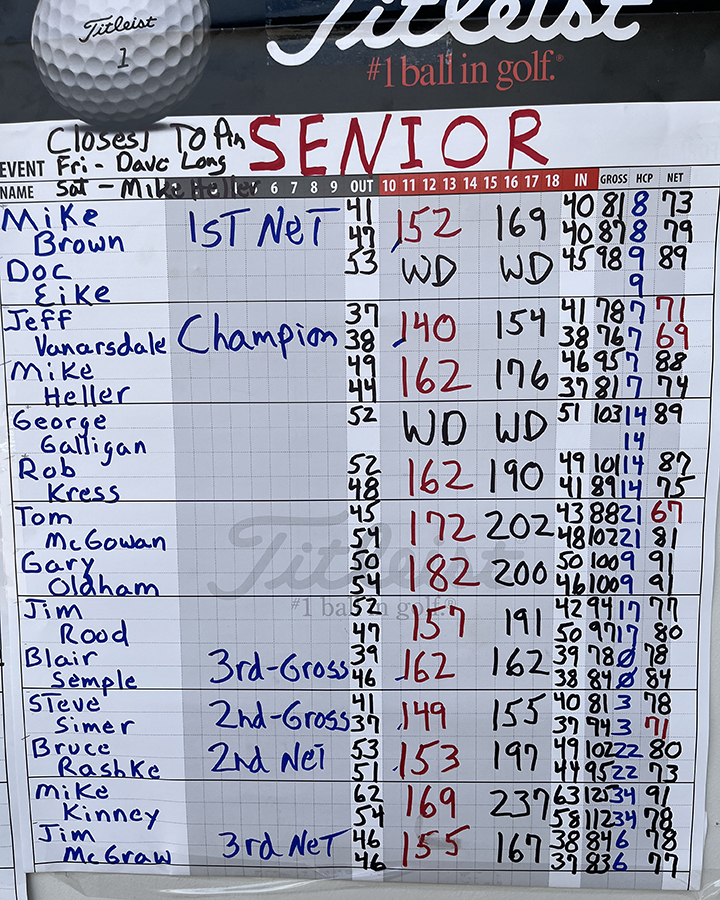 Titleist
1
Titleist
#1 ball in golf.®
Closest To Pin SENIOR
EVENT Fri - Dave Long
Sat - Mike Heller
NAME 6 7 8 9 OUT 10 11 12 13 14 15 16 17 18 IN GROSS HCP NET
Mike 1ST NeT 41 152 169 40 81 8 73
Brown 47 40 87 8 79
Doc 53 WD WD 45 98 9 89
Eike 9
Jeff Champion 37 140 154 41 78 7 71
Vanarsdale 38 38 76 7 69
Mike 49 162 176 46 95 7 88
Heller 44 37 81 7 74
George 52 WD WD 51 103 14 89
Galligan 14
Rob 52 162 190 49 101 14 87
Kress 48 41 89 14 75
Tom 45 172 202 43 88 21 67
McGowan 54 48 102 21 81
Gary 50 182 200 50 100 9 91
Oldham 54 46 100 9 91
Titleist
#1 ball in golf.®
Jim 52 157 191 42 94 17 77
Rood 47 50 97 17 80
Blair 3rd-Gross 39 162 162 39 78 0 78
Semple 46 38 84 0 84
Steve 2nd-Gross 41 149 155 40 81 3 78
Simer 37 37 94 3 71
Bruce 2nd NeT 53 153 197 49 102 22 80
Rashke 51 44 95 22 73
Mike 62 169 237 63 125 34 91
Kinney 54 58 112 34 78
Jim 3rd NeT 46 155 167 38 84 6 78
McGraw 46 37 83 6 77